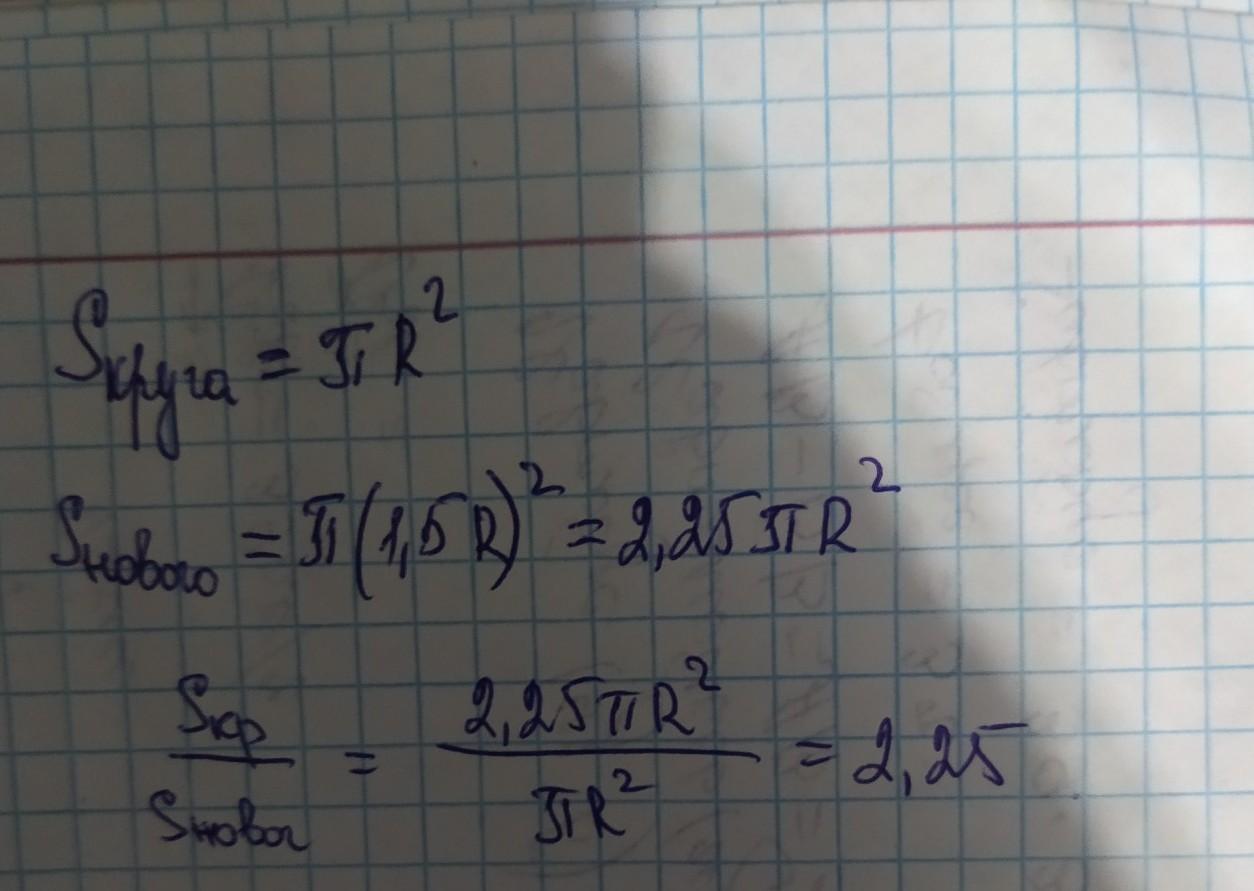 Sкруга = πR²
Sнового = π(1,5R)² = 2,25πR²
Sкр/Sновог = 2,25πR²/πR² = 2,25